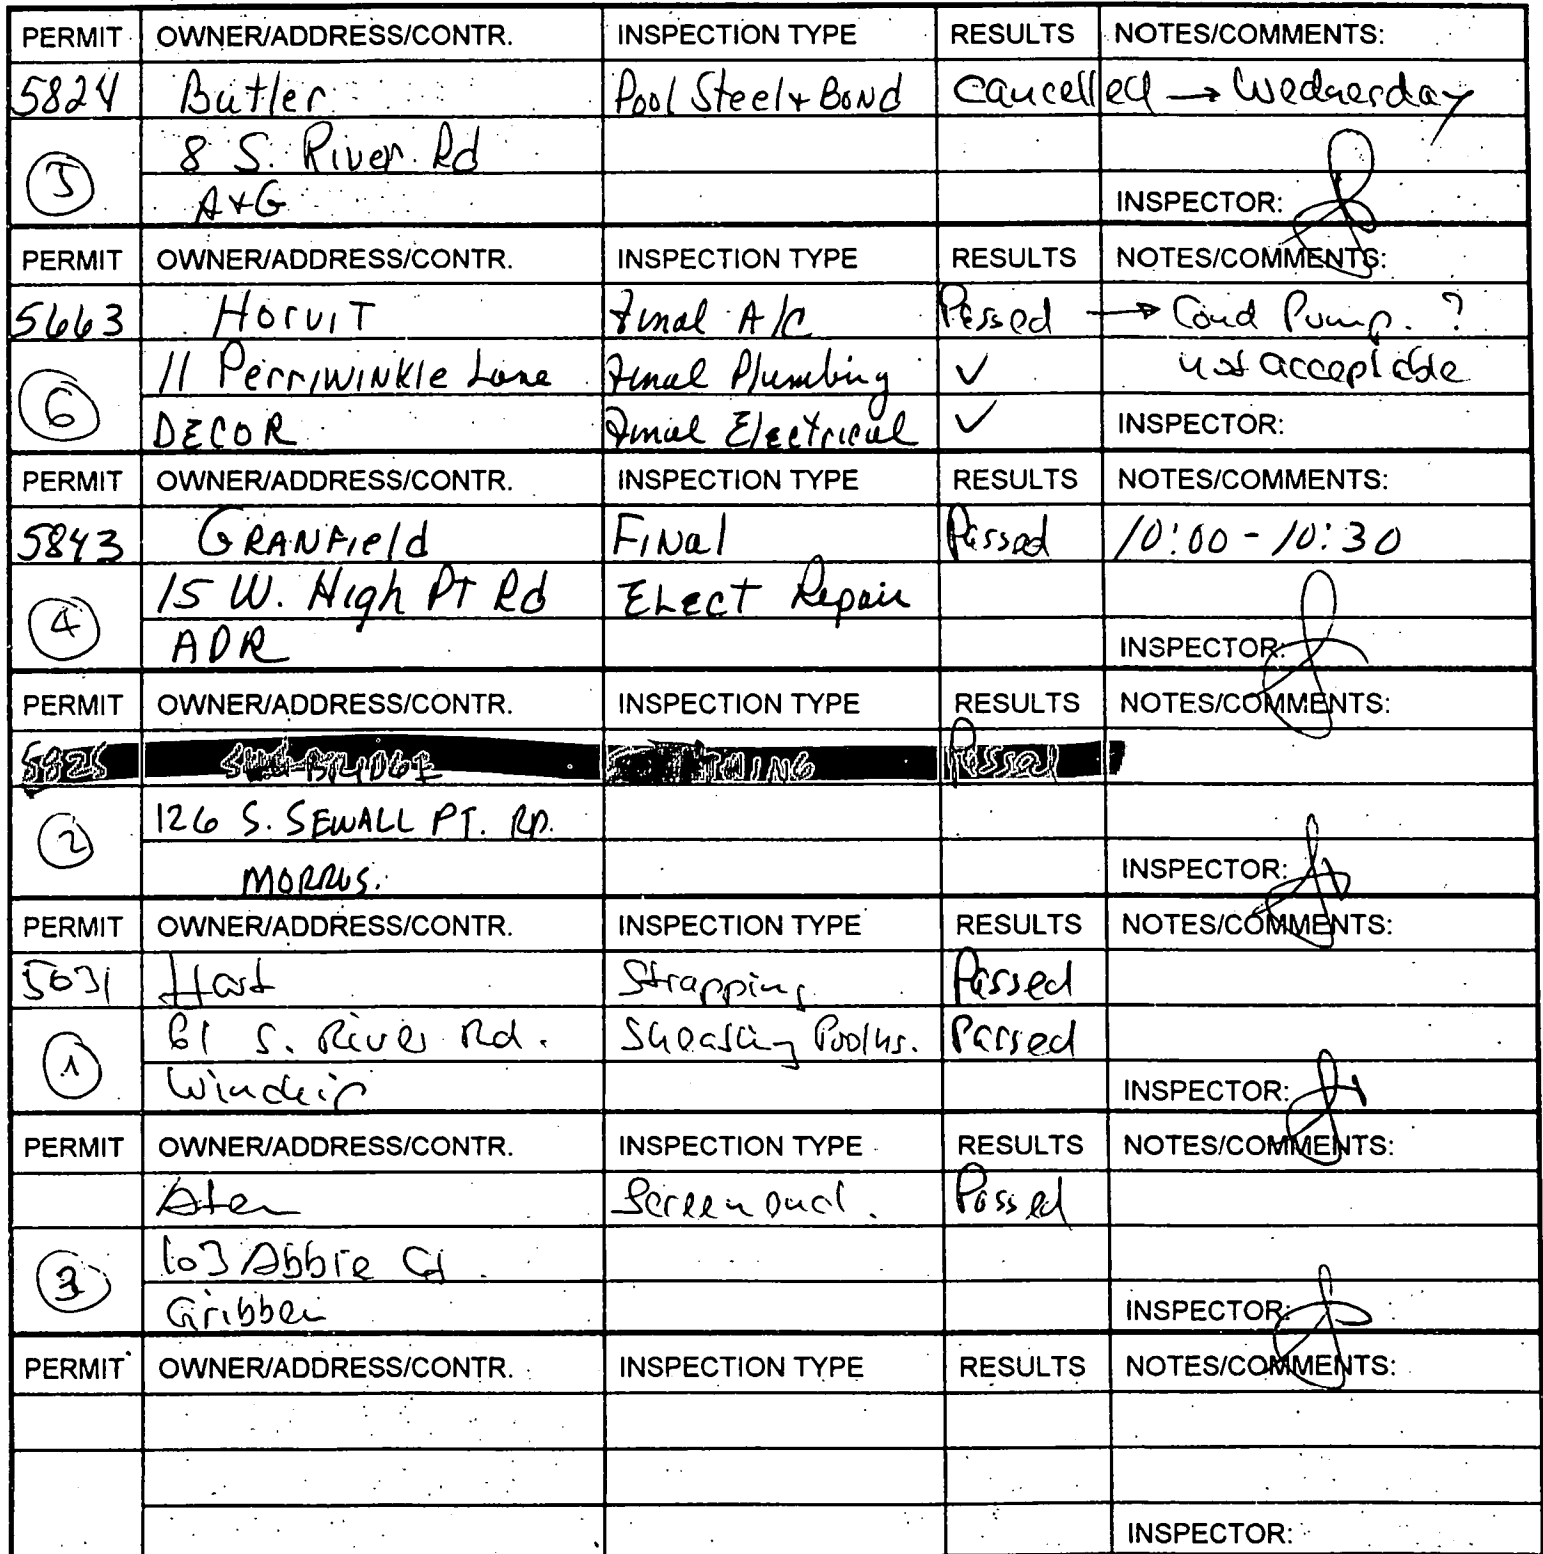 PERMIT OWNER/ADDRESS/CONTR. INSPECTION TYPE RESULTS NOTES/COMMENTS:
5824 Butler Pool Steel + Bond Cancelled → Wednesday
5 8 S. River Rd
A+G INSPECTOR:
PERMIT OWNER/ADDRESS/CONTR. INSPECTION TYPE RESULTS NOTES/COMMENTS:
5663 Horvit Final A/C Passed → Cond Pump. ?
6 11 Perriwinkle Lane Final Plumbing ✓ not acceptable
DECOR Final Electrical ✓ INSPECTOR:
PERMIT OWNER/ADDRESS/CONTR. INSPECTION TYPE RESULTS NOTES/COMMENTS:
5843 GRANFIEld FINal Passed 10:00 - 10:30
4 15 W. High PT Rd ELECT Repair
ADR INSPECTOR:
PERMIT OWNER/ADDRESS/CONTR. INSPECTION TYPE RESULTS NOTES/COMMENTS:
5825 Passed
2 126 S. SEWALL PT. RD.
INSPECTOR:
PERMIT OWNER/ADDRESS/CONTR. INSPECTION TYPE RESULTS NOTES/COMMENTS:
5631 Hart Strapping Passed
1 61 S. River Rd. Passed
INSPECTOR:
PERMIT OWNER/ADDRESS/CONTR. INSPECTION TYPE RESULTS NOTES/COMMENTS:
Screen encl. Passed
3 103 Abbie Ct.
Gribben INSPECTOR:
PERMIT OWNER/ADDRESS/CONTR. INSPECTION TYPE RESULTS NOTES/COMMENTS:
INSPECTOR: